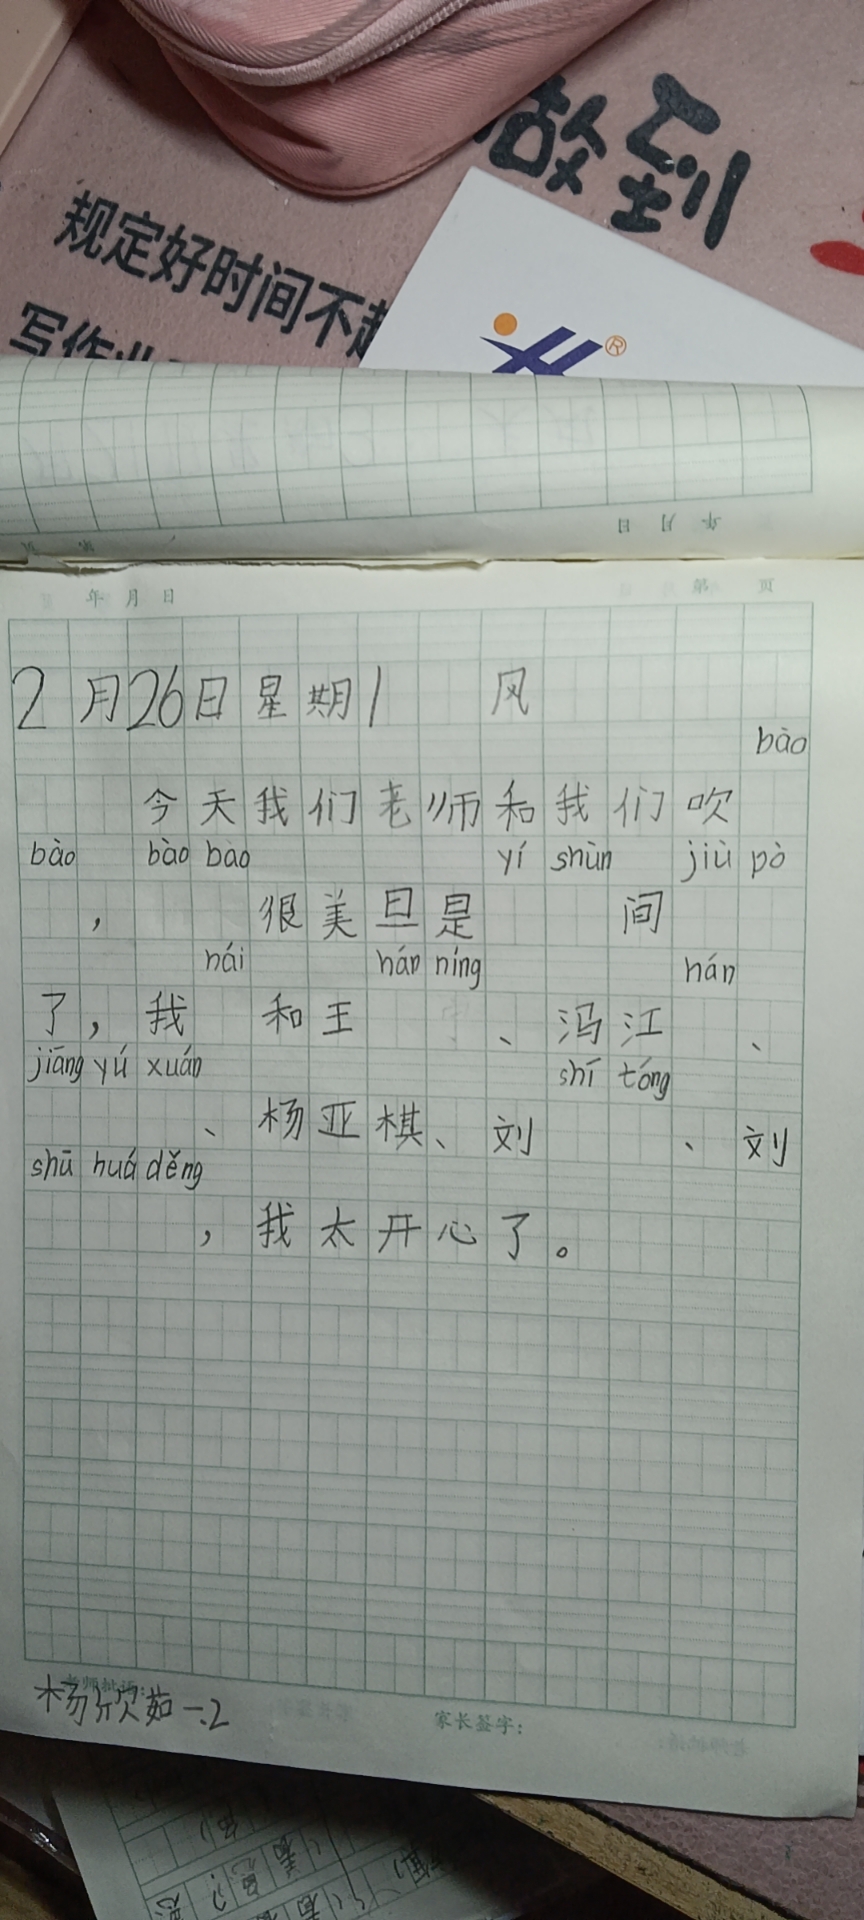 做到
规定好时间不超
写作业
®
年 月 日
第 页
年 月 日
第 页
2月26日星期1 风
bào
今天我们老师和我们吹
bào bào bào yí shùn jiù pò
， 很美旦是 间
nái hán níng hán
了，我 和王 、冯江 、
jiāng yú xuán shī tóng
、杨亚棋、刘 、刘
shū huá děng
，我太开心了。
老师批语：
杨欣茹一.2
家长签字：